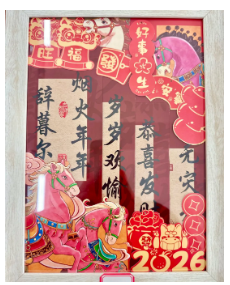 旺福
發
好事
生
辞暮尔
烟火年年
岁岁欢愉
恭喜发
无灾
2026